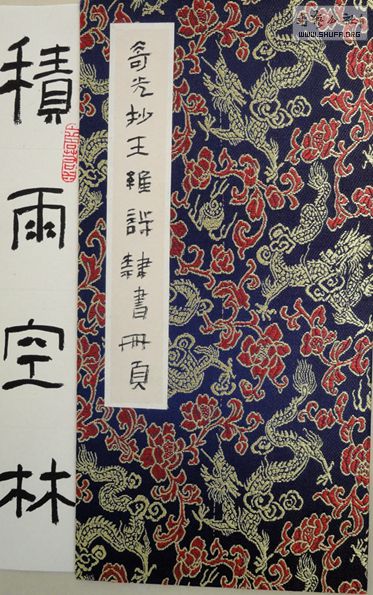 奇光抄王維詩隸書冊頁
積雨空林
WWW.SHUFA.ORG